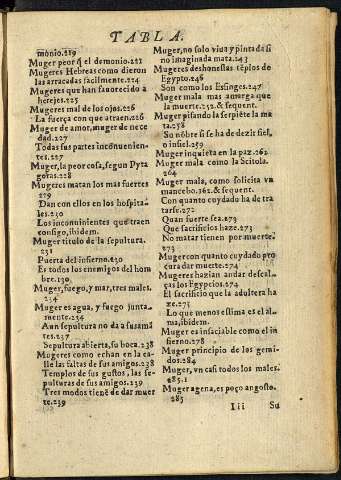 TABLA.
monio.219
Muger peor q̃ el demonio.221
Mugeres Hebreas como dieron
las arracadas facilmente.224
Mugeres que han fauorecido a
herejes.225
Mugeres mal de los ojos.226
La fuerça con que atraen.226
Muger de amor, muger de nece
dad.227
Todas sus partes inconuenien-
tes.227
Muger, la peor cosa, segun Pyta
goras.228
Mugeres matan los mas fuertes
229
Dan con ellos en los hospita-
les.230
Los inconuinientes que traen
consigo, ibidem.
Muger titulo de la sepultura.
231
Puerta del infierno.230
Es todos los enemigos del hom
bre.230
Muger, fuego, y mar, tres males.
234
Muger es agua, y fuego junta-
mente.236
Aun sepultura no da a su amã
tes.237
Sepultura abierta, su boca.238
Mugeres como echan en la ca-
lle las faltas de sus amigos.238
Templos de sus gustos, las se-
pulturas de sus amigos.239
Tres modos tiene de dar muer
te.239
Muger, no solo viua y pintada si
no imaginada mata.243
Mugeres deshonestas tẽplos de
Egypto.246
Son como los Esfinges.247
Muger mala mas amarga que
la muerte.252.& sequent.
Muger pisando la serpiẽte la ma
ta.258
Su nõbre si se ha de dezir fiel,
o infiel.259
Muger inquieta en la paz.262
Muger mala como la Scitola.
264
Muger mala, como solicita vn
mancebo.262.& sequent.
Con quanto cuydado ha de tra
tarse.272
Quan fuerte sea.273
Que sacrificios haze.273
No matar tienen por muerte.
273
Muger con quanto cuydado pro
cura dar muerte.274
Mugeres hazian andar descal-
ças los Egypcios.274
El sacrificio que la adultera ha
ze.275
Lo que menos estima es el al-
ma, ibidem.
Muger es insaciable como el in
fierno.278
Muger principio de los gemi-
dos.284
Muger, vn casi todos los males.
285.1
Muger agena, es poço angosto.
285
Iii Su